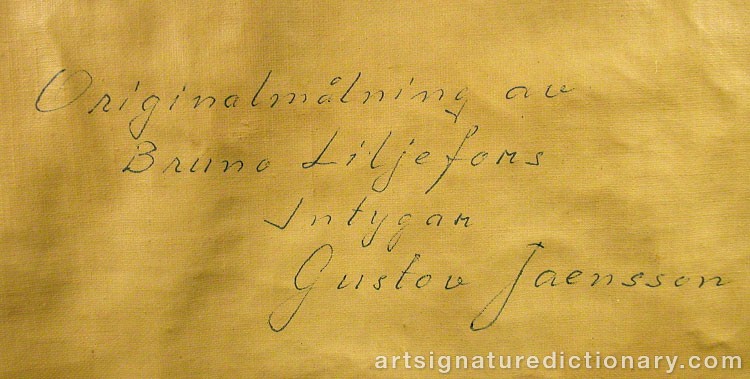 Originalmålning av
Bruno Liljefors
Intygar
Gustav Jaensson
artsignaturedictionary.com